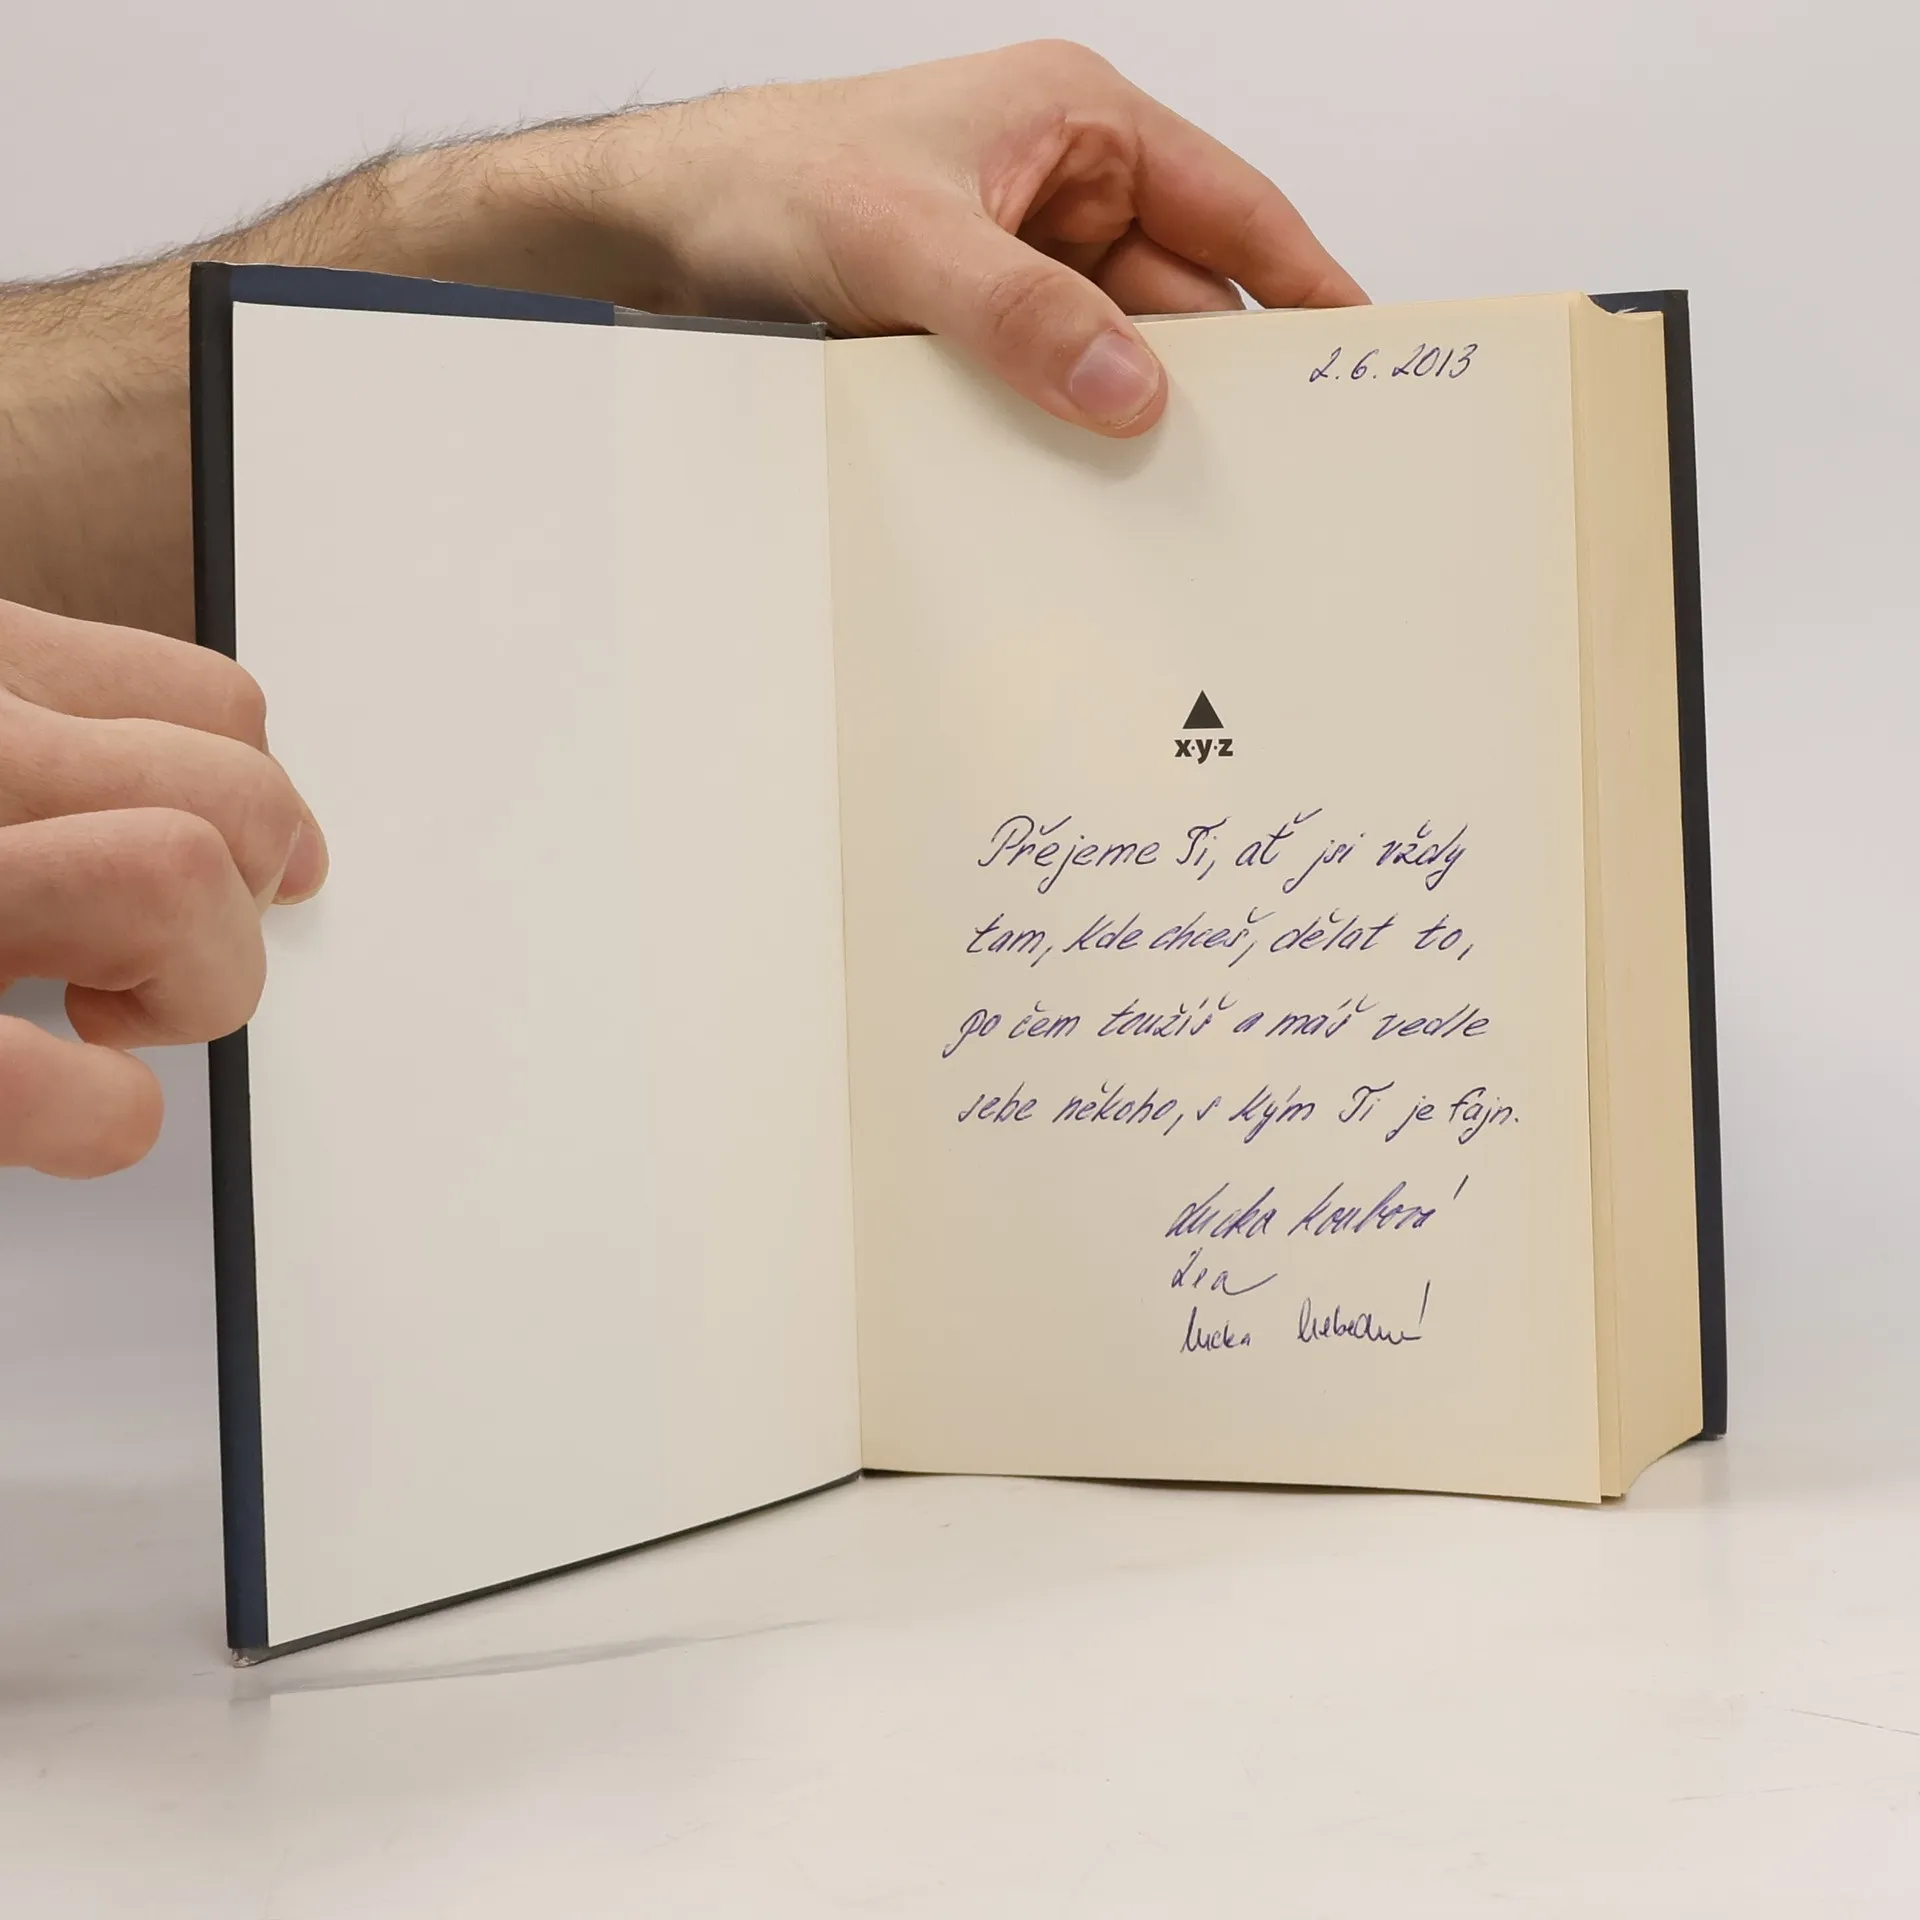 2.6.2013
x·y·z
Přejeme Ti, ať jsi vždy
tam, kde chceš, dělat to,
po čem toužíš a máš vedle
sebe někoho, s kým Ti je fajn.
Lucka Koubová
Zea
Lucka